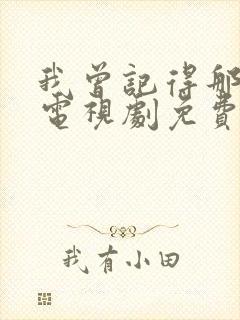 我曾記得那
電視劇免費
我有小田